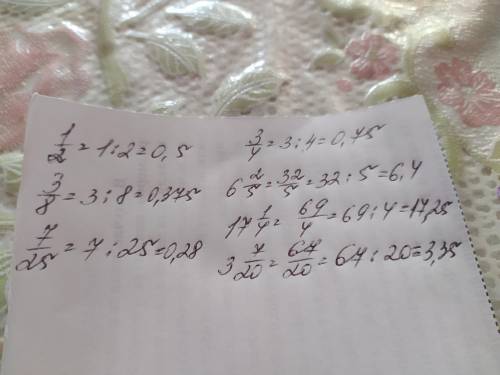 1/2 = 1 : 2 = 0,5
3/8 = 3 : 8 = 0,375
7/25 = 7 : 25 = 0,28
3/4 = 3 : 4 = 0,75
6 2/5 = 32/5 = 32 : 5 = 6,4
17 1/4 = 69/4 = 69 : 4 = 17,25
3 7/20 = 67/20 = 67 : 20 = 3,35